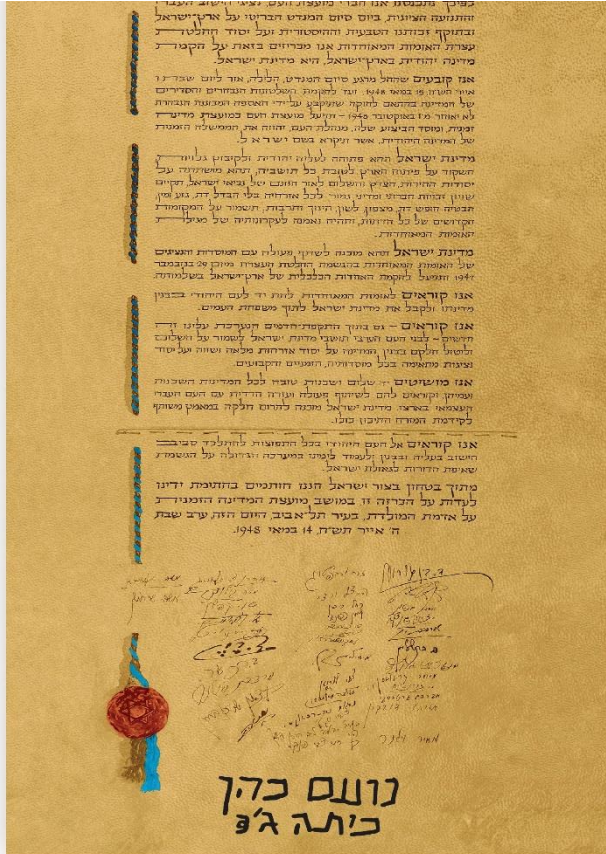 לפיכך נתכנסנו אנו חברי מועצת העם, נציגי הישוב העברי
והתנועה הציונית, ביום סיום המנדט הבריטי על ארץ־ישראל
ובתוקף זכותנו הטבעית וההיסטורית ועל יסוד החלטת
עצרת האומות המאוחדות אנו מכריזים בזאת על הקמת
מדינה יהודית בארץ־ישראל, היא מדינת ישראל.
אנו קובעים שהחל מרגע סיום המנדט, הלילה, אור ליום שבת ו׳
אייר תש״ח, 15 במאי 1948, ועד להקמת השלטונות הנבחרים והסדירים
של המדינה בהתאם לחוקה שתיקבע על־ידי האספה המכוננת הנבחרת
לא יאוחר מ־1 באוקטובר 1948 – תפעל מועצת העם כמועצת מדינה
זמנית, ומוסד הביצוע שלה, מנהלת העם, יהווה את הממשלה הזמנית
של המדינה היהודית, אשר תיקרא בשם ישראל.
מדינת ישראל תהא פתוחה לעליה יהודית ולקיבוץ גלויות;
תשקוד על פיתוח הארץ לטובת כל תושביה; תהא מושתתה על
יסודות החירות, הצדק והשלום לאור חזונם של נביאי ישראל; תקיים
שויון זכויות חברתי ומדיני גמור לכל אזרחיה בלי הבדל דת, גזע ומין;
תבטיח חופש דת, מצפון, לשון, חינוך ותרבות; תשמור על המקומות
הקדושים של כל הדתות; ותהיה נאמנה לעקרונותיה של מגילת
האומות המאוחדות.
מדינת ישראל תהא מוכנה לשתף פעולה עם המוסדות והנציגים
של האומות המאוחדות בהגשמת החלטת העצרת מיום 29 בנובמבר
1947 ותפעל להקמת האחדות הכלכלית של ארץ־ישראל בשלמותה.
אנו קוראים לאומות המאוחדות לתת יד לעם היהודי בבנין
מדינתו ולקבל את מדינת ישראל לתוך משפחת העמים.
אנו קוראים – גם בתוך התקפת־הדמים הנערכת עלינו זה
חדשים – לבני העם הערבי תושבי מדינת ישראל לשמור על השלום
וליטול חלקם בבנין המדינה על יסוד אזרחות מלאה ושווה ועל יסוד
נציגות מתאימה בכל מוסדותיה, הזמניים והקבועים.
אנו מושיטים יד שלום ושכנות טובה לכל המדינות השכנות
ועמיהן, וקוראים להם לשיתוף פעולה ועזרה הדדית עם העם העברי
העצמאי בארצו. מדינת ישראל מוכנה לתרום חלקה במאמץ משותף
לקידמת המזרח התיכון כולו.
אנו קוראים אל העם היהודי בכל התפוצות להתלכד סביב
הישוב בעליה ובבנין ולעמוד לימינו במערכה הגדולה על הגשמת
שאיפת הדורות לגאולת ישראל.
מתוך בטחון בצור ישראל הננו חותמים בחתימת ידינו
לעדות על הכרזה זו, במושב מועצת המדינה הזמנית,
על אדמת המולדת, בעיר תל־אביב, היום הזה, ערב שבת,
ה׳ אייר תש״ח, 14 במאי 1948.
ד. בן גוריון
מאיר וילנר
נועם כהן
כיתה ג׳3